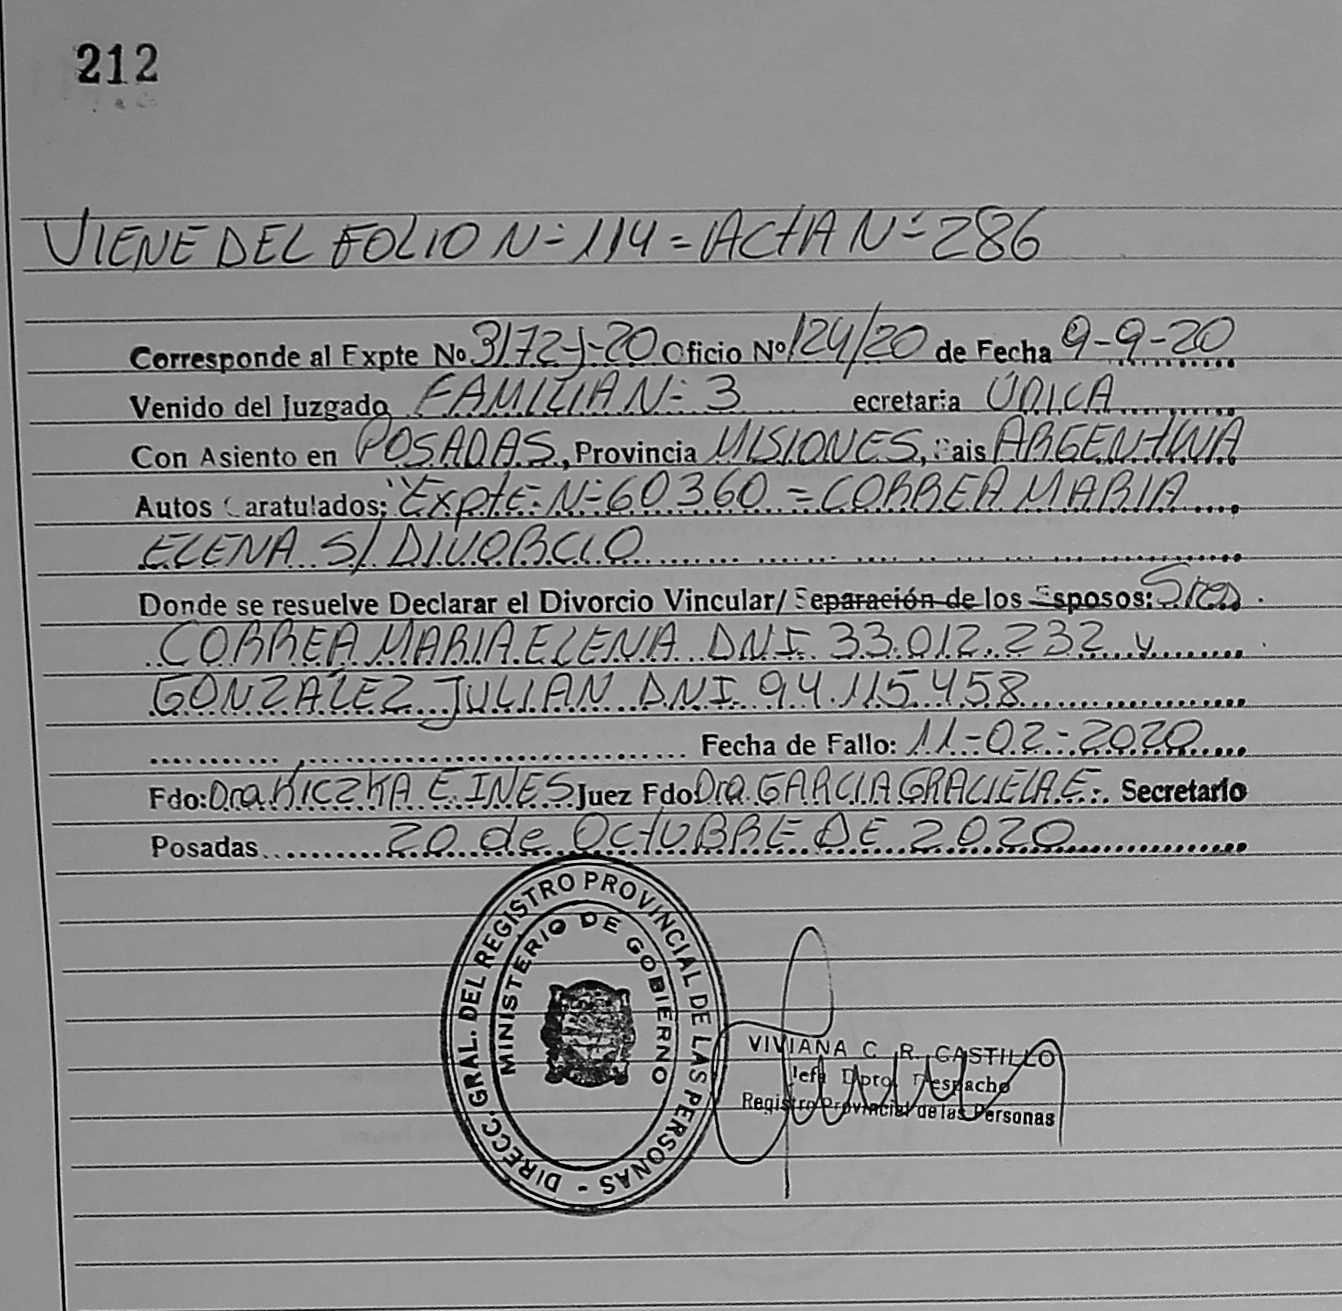 212
VIENE DEL FOLIO Nº 114 = ACTA Nº 286
Corresponde al Expte Nº 3172-J-20 Oficio Nº 124/20 de Fecha 9-9-20
Venido del Juzgado FAMILIA Nº 3 ecretaria ÚNICA
Con Asiento en POSADAS, Provincia MISIONES, Pais ARGENTINA
Autos Caratulados: "Expte. Nº 60360 = CORREA MARIA
ELENA S/ DIVORCIO
Donde se resuelve Declarar el Divorcio Vincular/ Separación de los Esposos: Sres
CORREA MARIA ELENA DNI 33.012.232 y
GONZALEZ JULIAN DNI 94.115.458
Fecha de Fallo: 11-02-2020
Fdo: Dra. KICZKA E. INES Juez Fdo Dra. GARCIA GRACIELA E. Secretario
Posadas 20 de OCTUBRE DE 2020
DIRECC. GRAL. DEL REGISTRO PROVINCIAL DE LAS PERSONAS -
MINISTERIO DE GOBIERNO
VIVIANA C. R. CASTILLO
Jefa Dpto. Despacho
Registro Provincial de las Personas